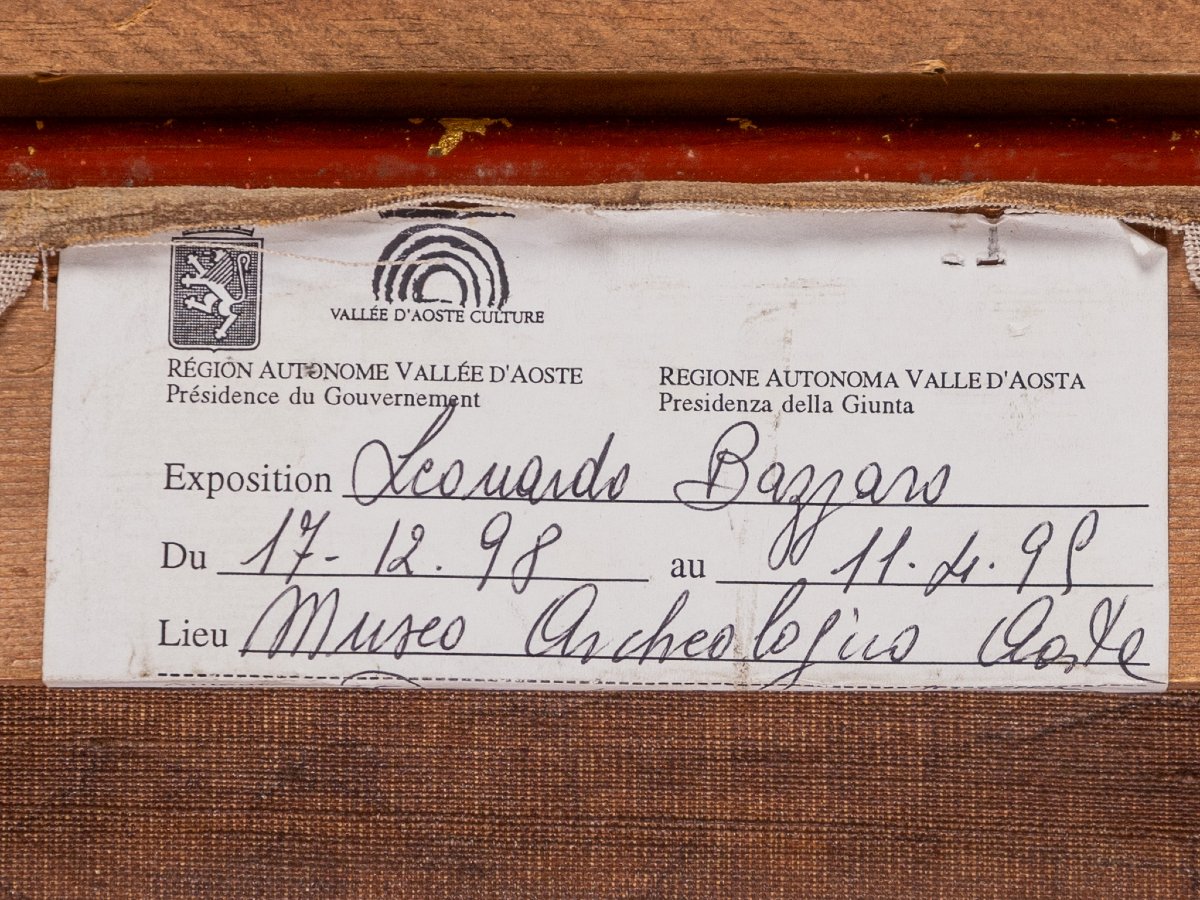 VALLÉE D'AOSTE CULTURE
RÉGION AUTONOME VALLÉE D'AOSTE
Présidence du Gouvernement
REGIONE AUTONOMA VALLE D'AOSTA
Presidenza della Giunta
Exposition Leonardo Bazzaro
Du 17-12.98 au 11.4.99
Lieu Museo Archeologico Aosta